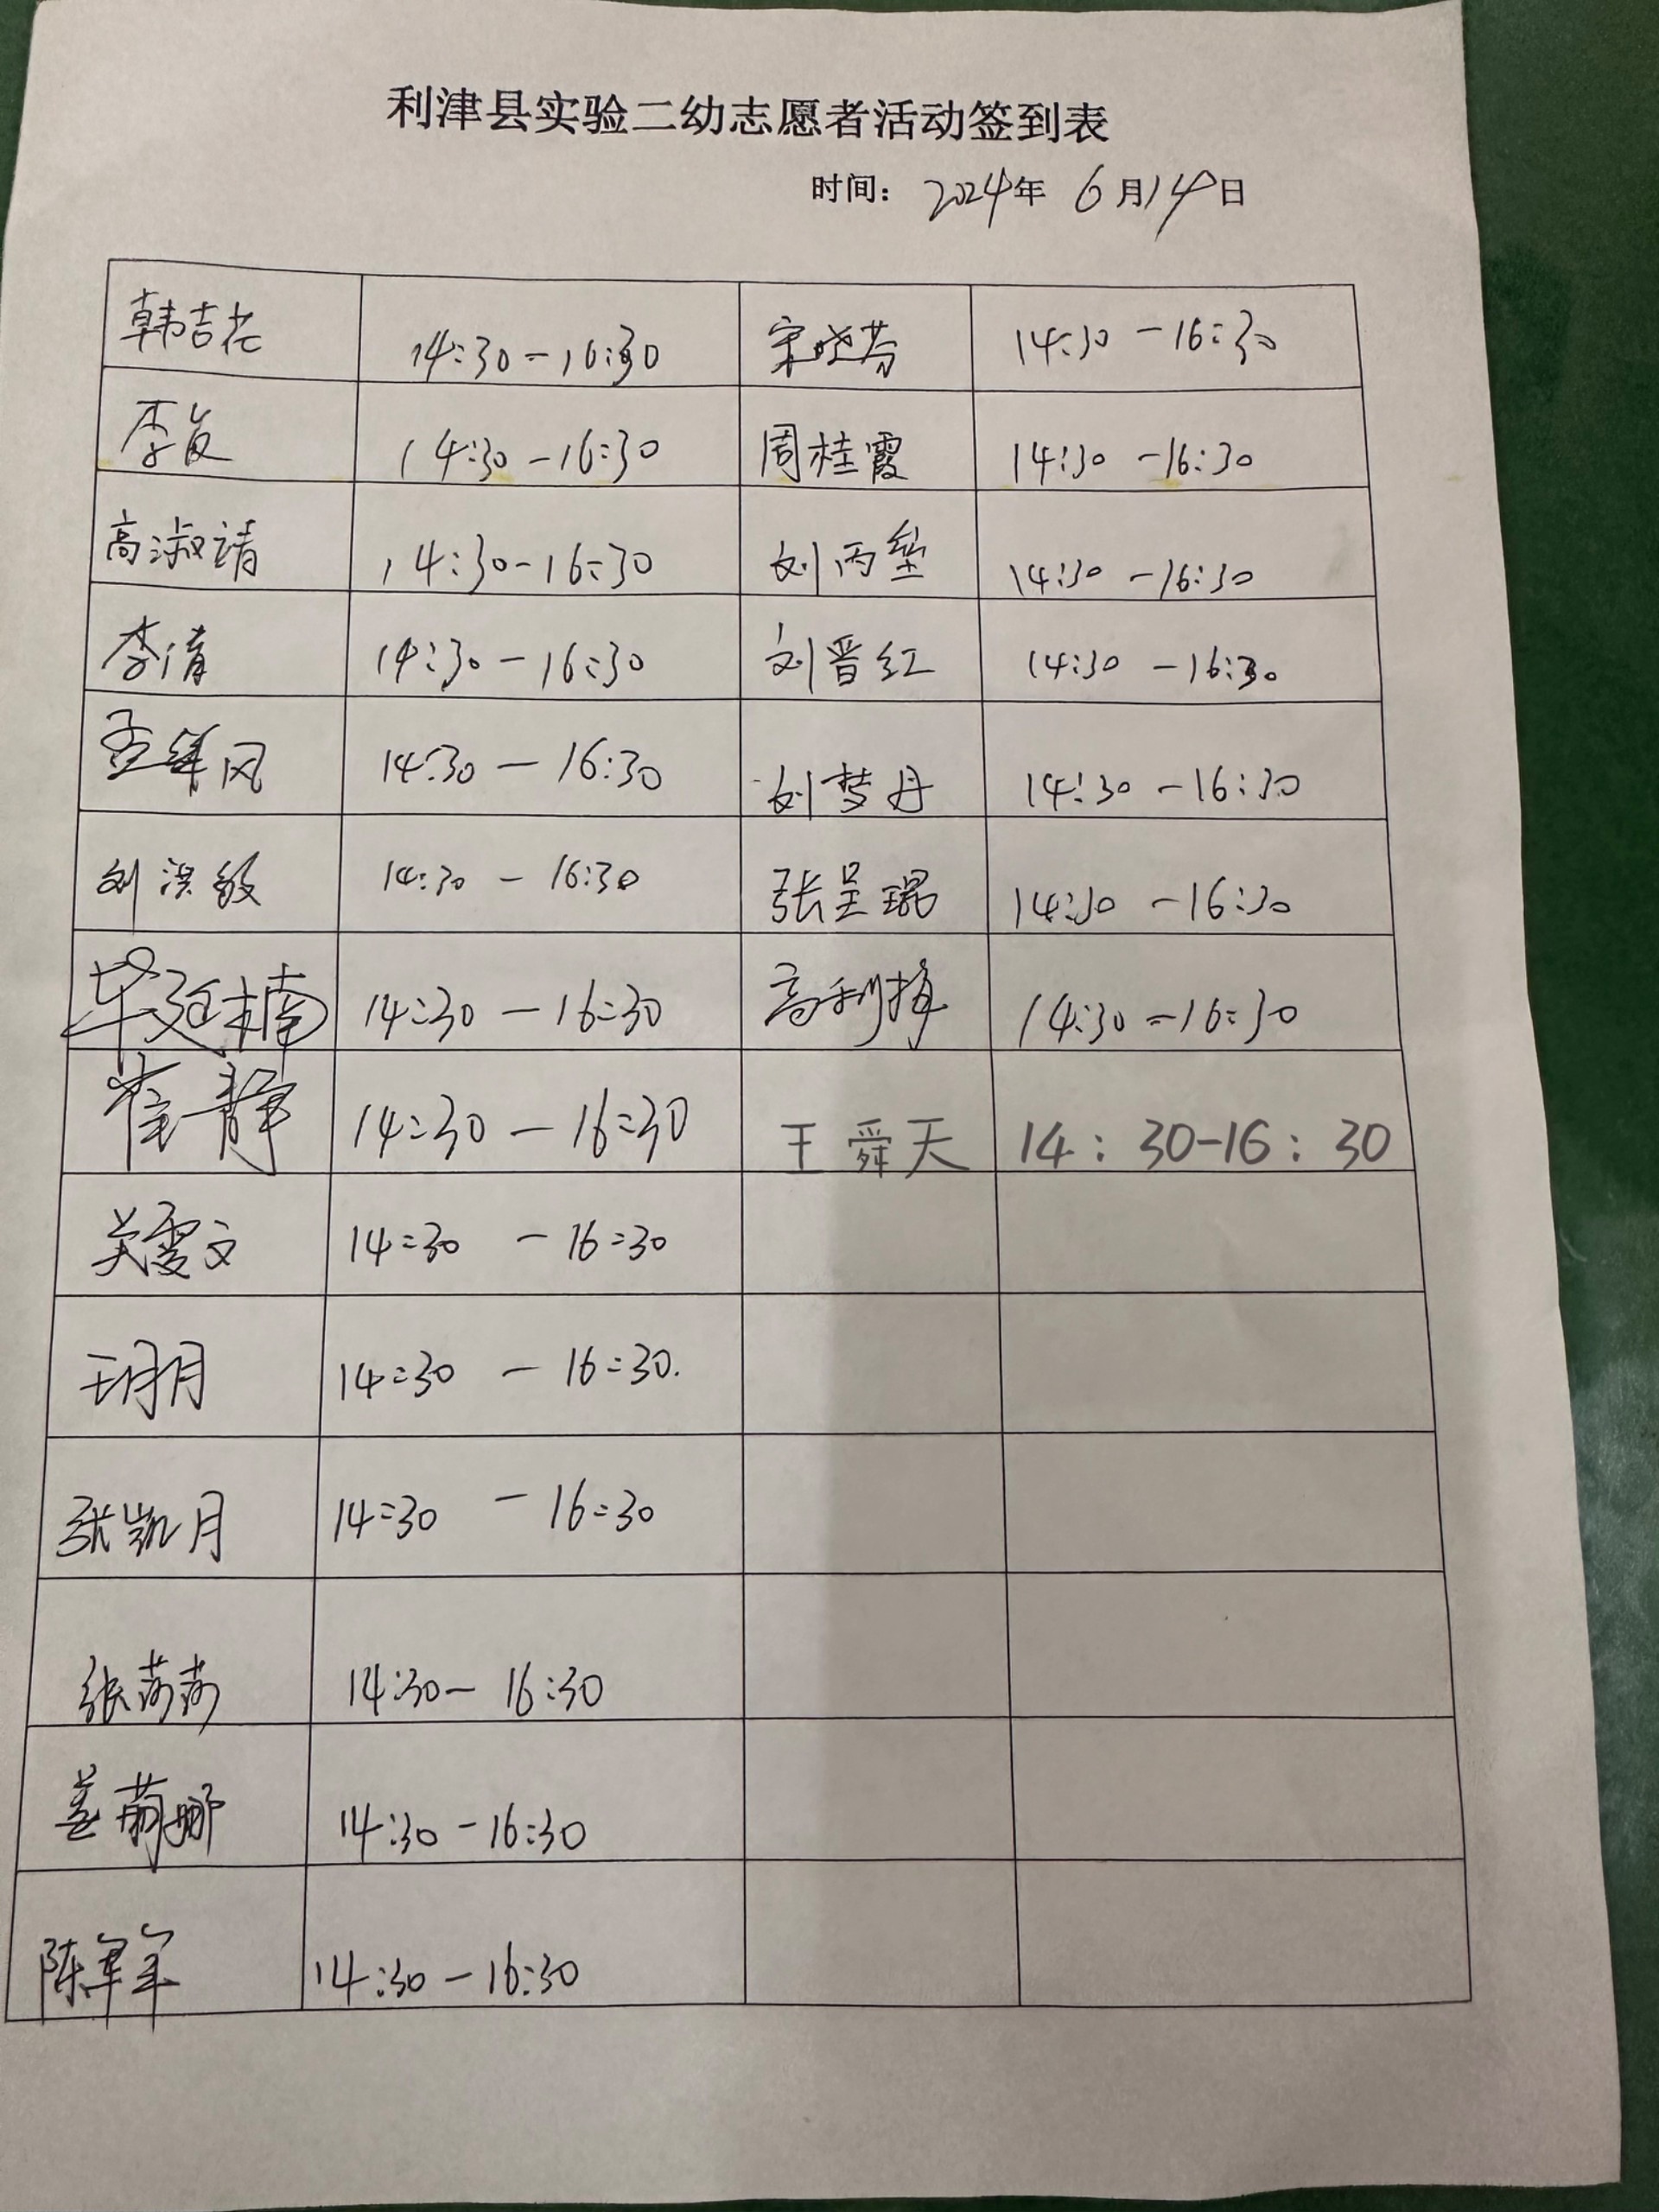 利津县实验二幼志愿者活动签到表
时间: 2024年 6月14日
韩吉花 14:30-16:30 宋晓芬 14:30-16:30
李俊 14:30-16:30 周桂霞 14:30-16:30
高淑靖 14:30-16:30 刘丙垒 14:30-16:30
李倩 14:30-16:30 刘晋红 14:30-16:30
14:30-16:30 刘梦丹 14:30-16:30
刘洪敏 14:30-16:30 张呈琨 14:30-16:30
毕延楠 14:30-16:30 高利梅 14:30-16:30
崔静 14:30-16:30 王舜天 14:30-16:30
关雯文 14:30-16:30
王明月 14:30-16:30.
张凯月 14:30-16:30
张莉莉 14:30-16:30
姜萌娜 14:30-16:30
陈军军 14:30-16:30